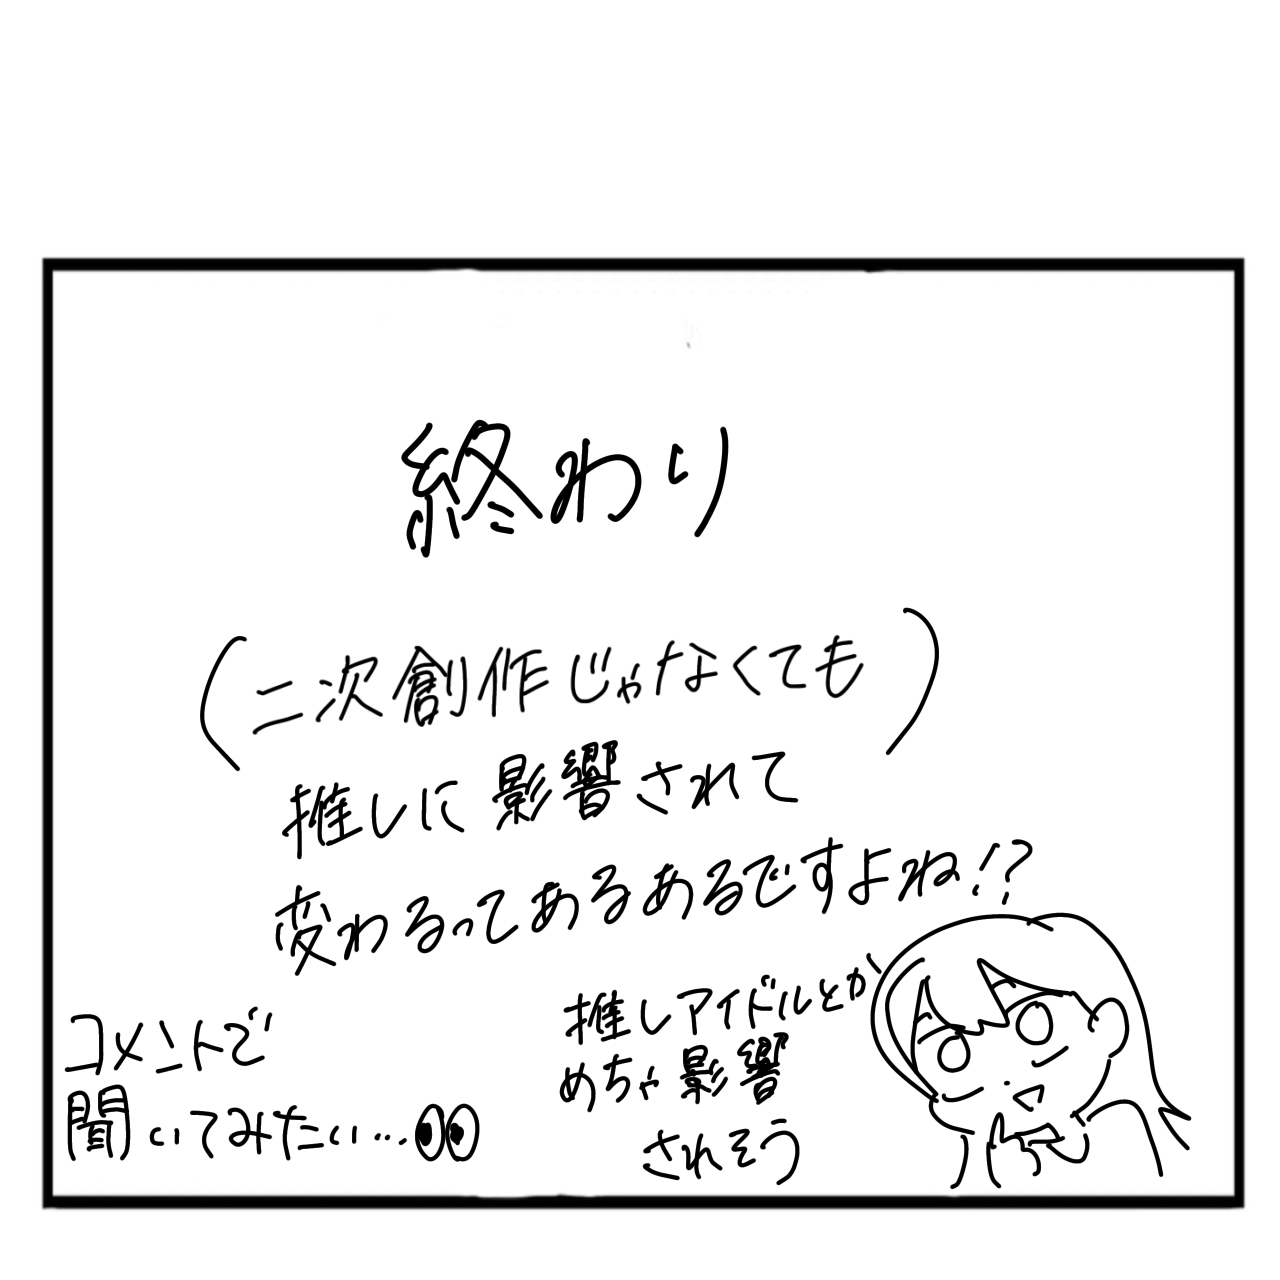 終わり
(二次創作じゃなくても)
推しに影響されて
変わるってあるあるですよね!?
推しアイドルとか
めちゃ影響
されそう
コメントで
聞いてみたい…👀